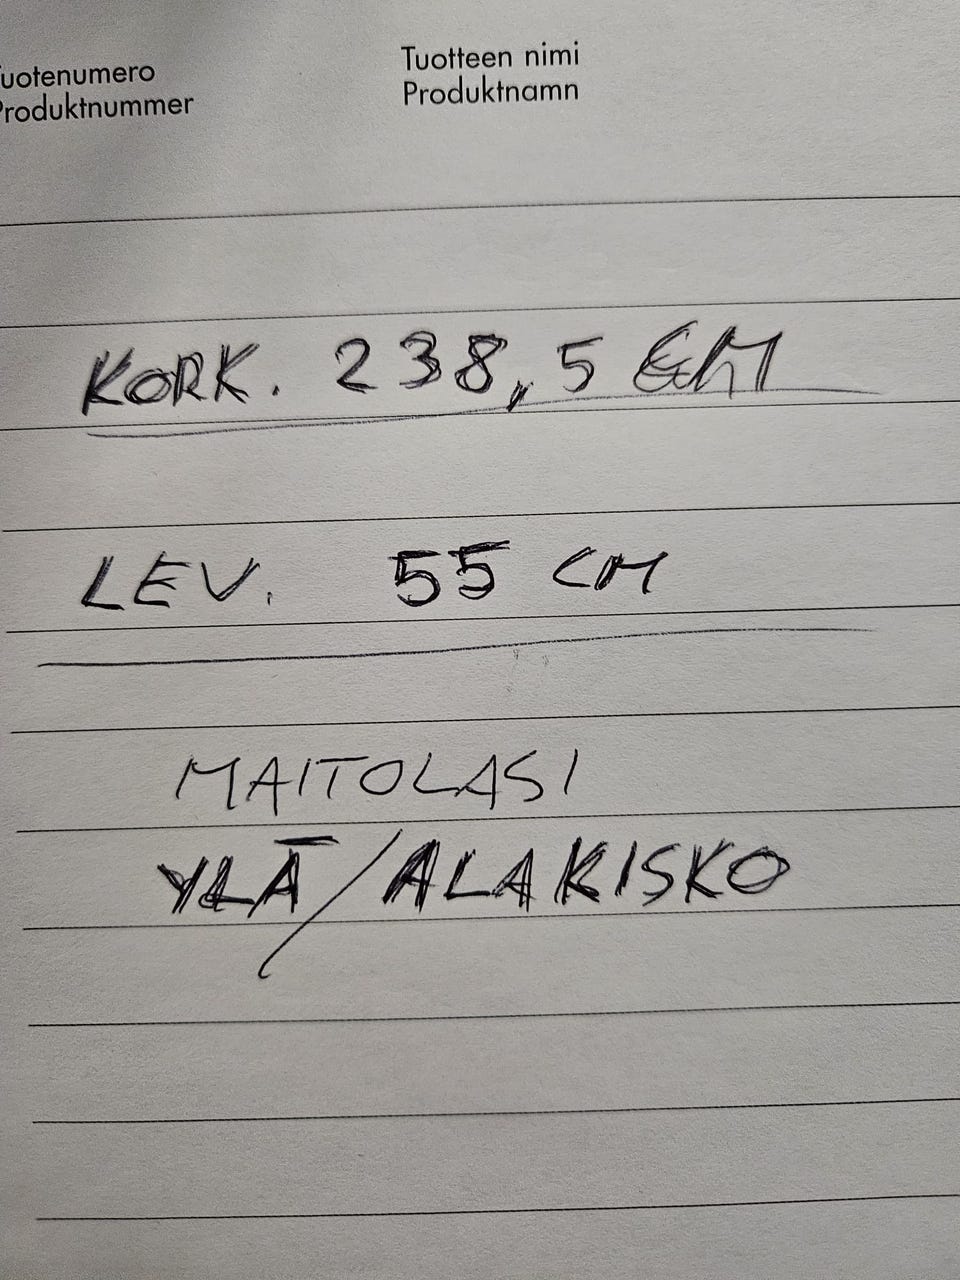 uotenumero
Produktnummer
Tuotteen nimi
Produktnamn
KORK. 238,5 CM
LEV. 55 CM
MAITOLASI
YLÄ/ALAKISKO